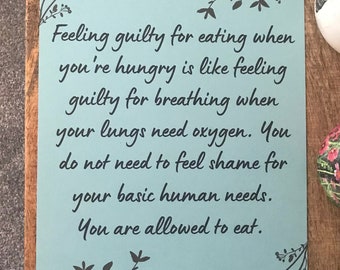 Feeling guilty for eating when
you're hungry is like feeling
guilty for breathing when
your lungs need oxygen. You
do not need to feel shame for
your basic human needs.
You are allowed to eat.